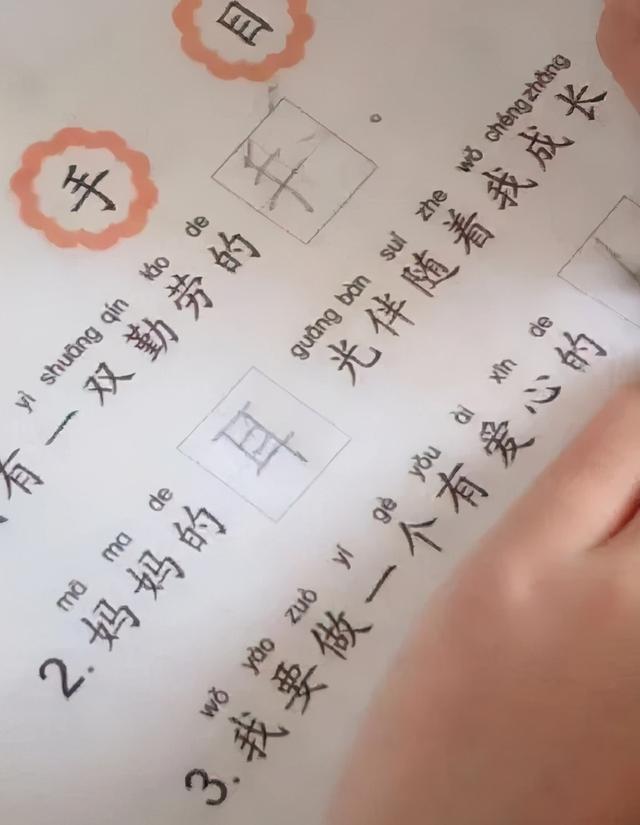 目
手
yì shuāng qín láo de
有一双勤劳的手
mā ma de guāng bàn suí zhe wǒ chéng zhǎng
2. 妈妈的耳光伴随着我成长
wǒ yào zuò yí gè yǒu ài xīn de
3. 我要做一个有爱心的